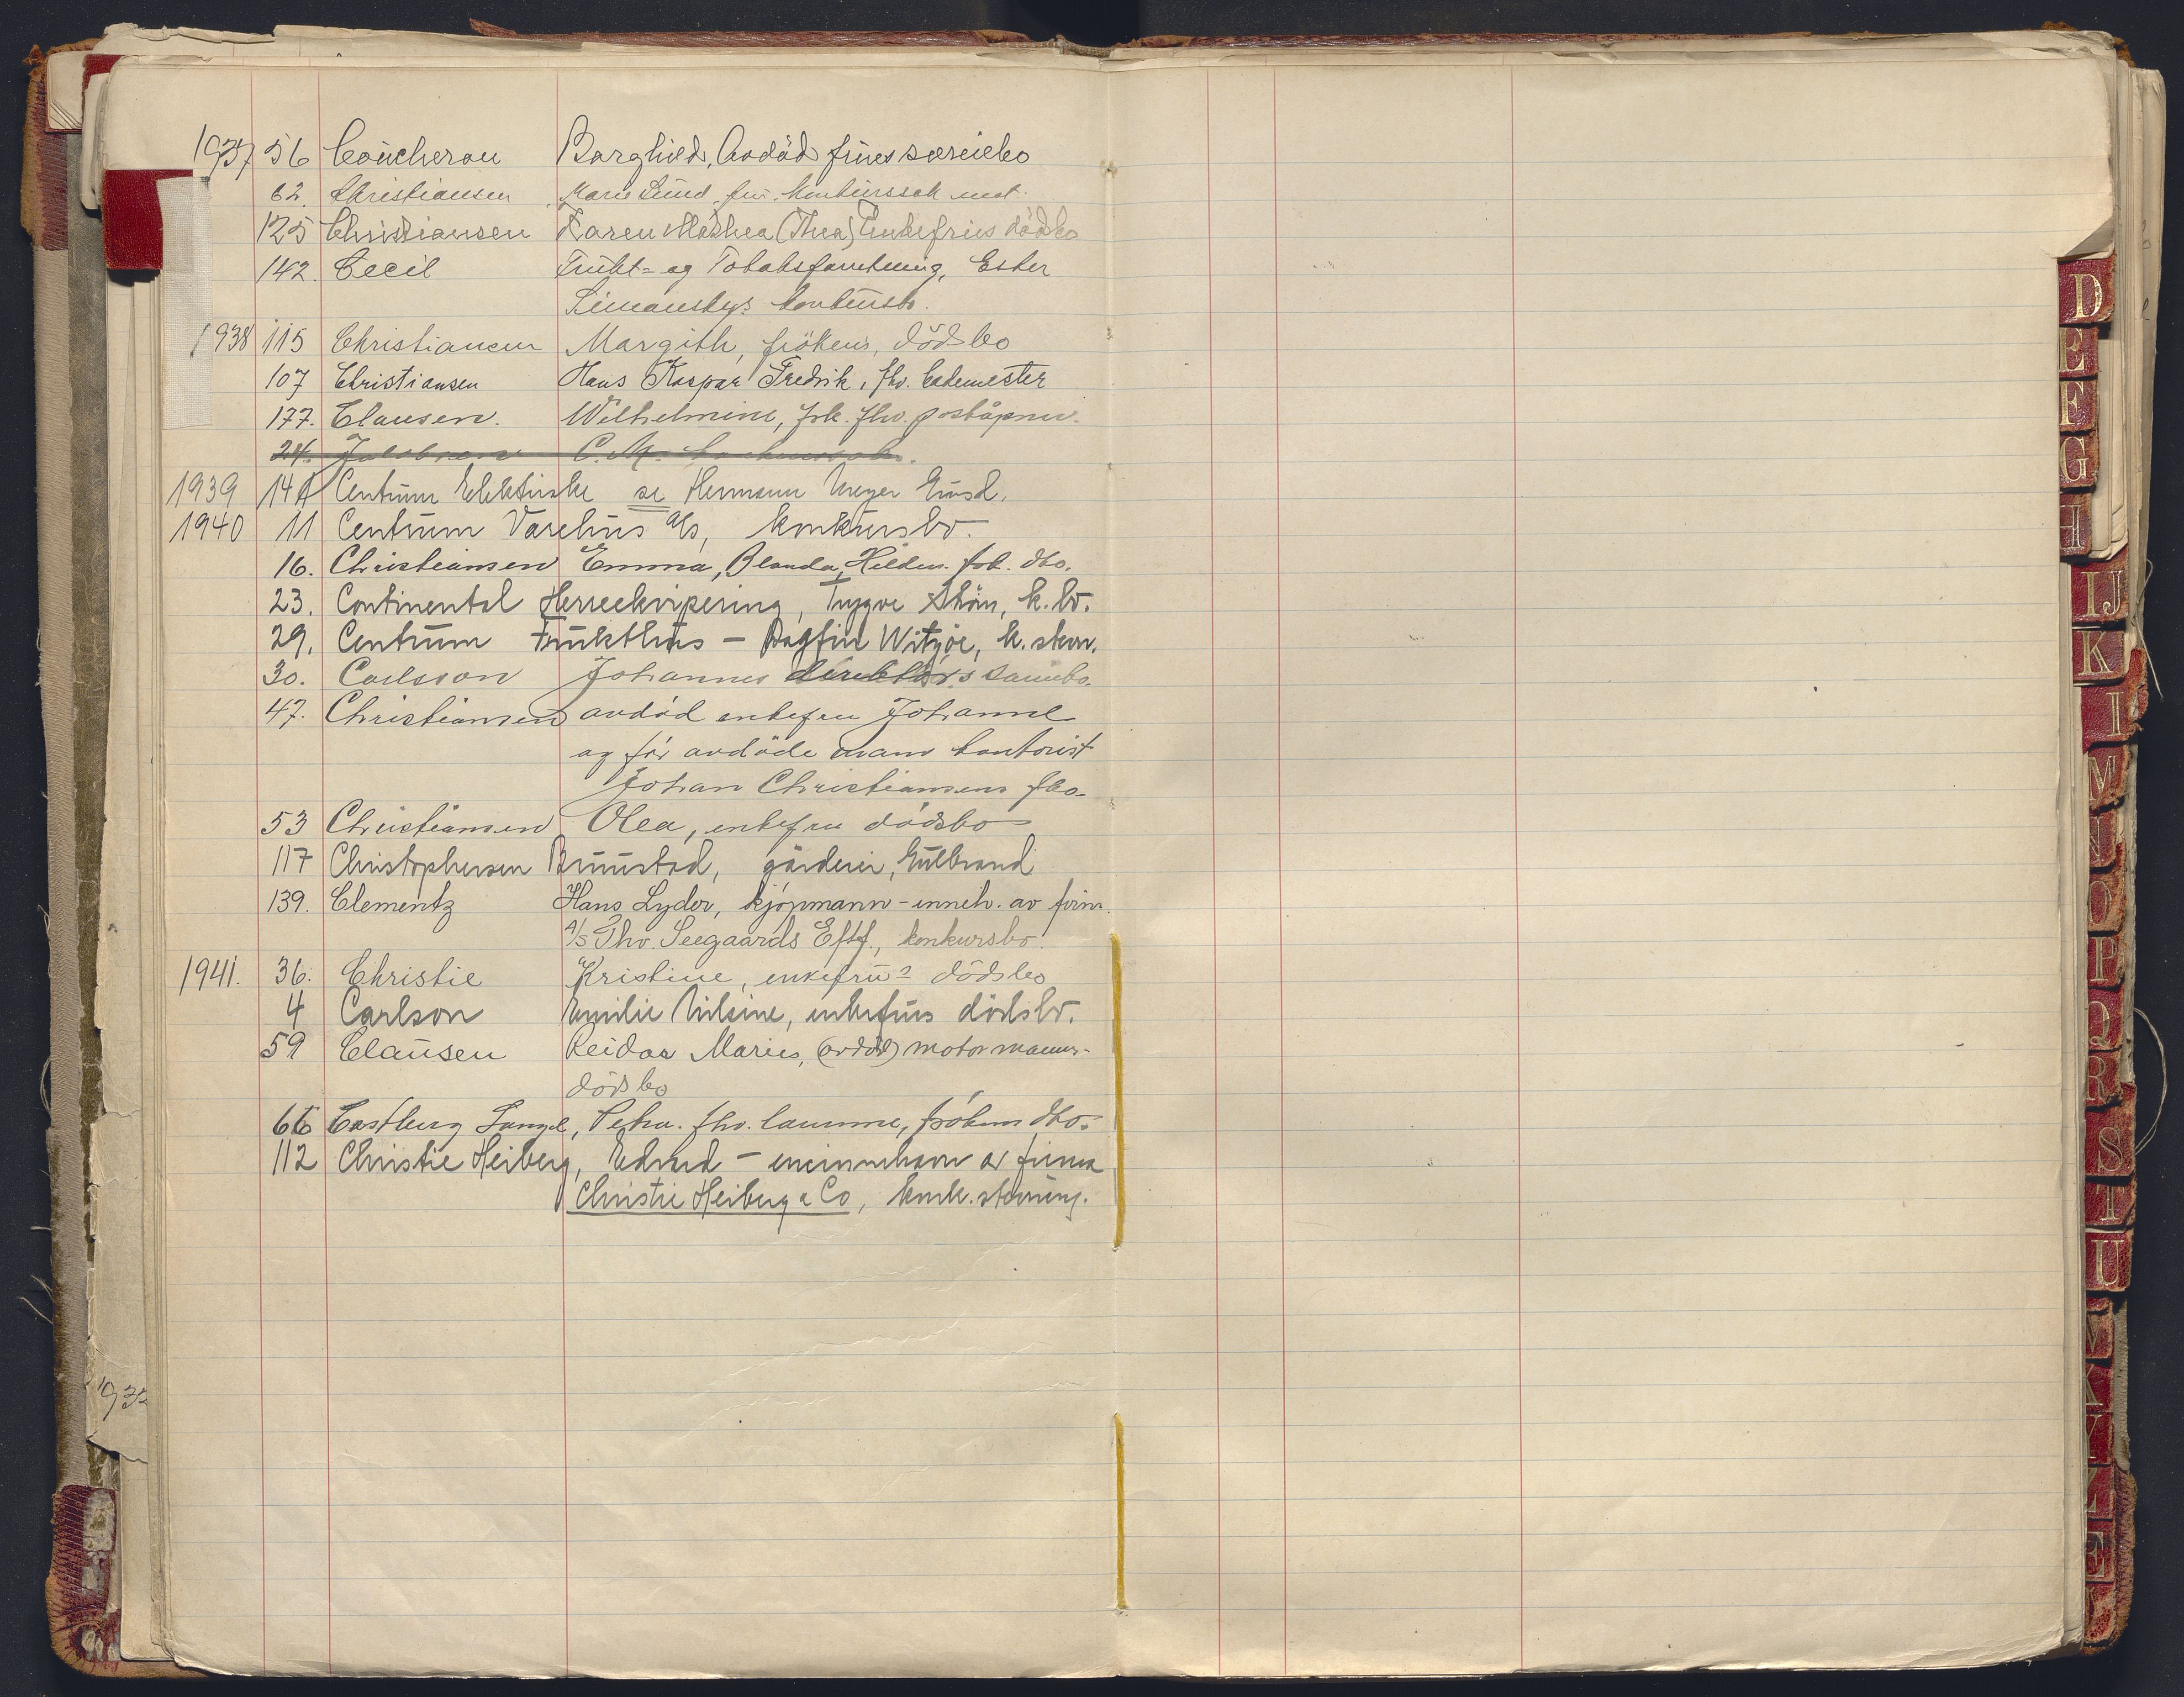 1937 56 Coucheron Borghild, Avdöd frues særeiebo
62. Christiansen Marie Lund fru. konkurssak
125 Christiansen Karen Mathea (Thea) Enkefrues dødsbo
142. Cecil Frukt= og Tobaksforretning, Ester
Simanskys konkursb.
1938 115 Christiansen Margith, frökens, dödsbo
107 Christiansen Hans Kaspar Fredrik, fhv. bademester
177. Clausen. Wilhelmine, frk. fhv. poståpner.
24. Jakobsen C. M.
1939 14A Centrum Elektriske se Hermann Meyer Grusd.
1940 11 Centrum Varehus A/s, konkursbo.
16. Christiansen Emma, Blanda, Hildur. frk. dbo.
23. Continental Herreekvipering, Trygve Sköin, k. bo.
29. Centrum Frukthus - Dagfin Witzöe, k. skom.
30. Carlsson Johannes direktör's
47. Christiansen avdöd enkefru Johanne
og før avdöde mann kontorist
Johan Christiansens fbo.
53 Christiansen Olea, enkefru dödsbo
117 Christophersen Brunstad, gårdeier, Gulbrand
139. Clementz Hans Lyder, kjøpmann - inneh. av firm.
A/S Thv. Seegaards Eftf., konkursbo.
1941. 36. Christie Kristine, enkefrus dödsbo
4 Carlson Emilie Nilsine, enkefrus dödsbo.
59 Clausen Reidar Marius, (avdöd) motormanns-
dödsbo
66 Castberg Lange, Petra. fhv. lærerinne, frökens dbo.
112 Christie Heiberg, Edvard - eneinnehaver av firma
Christie Heiberg & Co, konk.
1932
D
E
F
G
H
IJ
K
L
M
N
O
P
Q
R
S
T
U
V
X
Y
Z
Æ